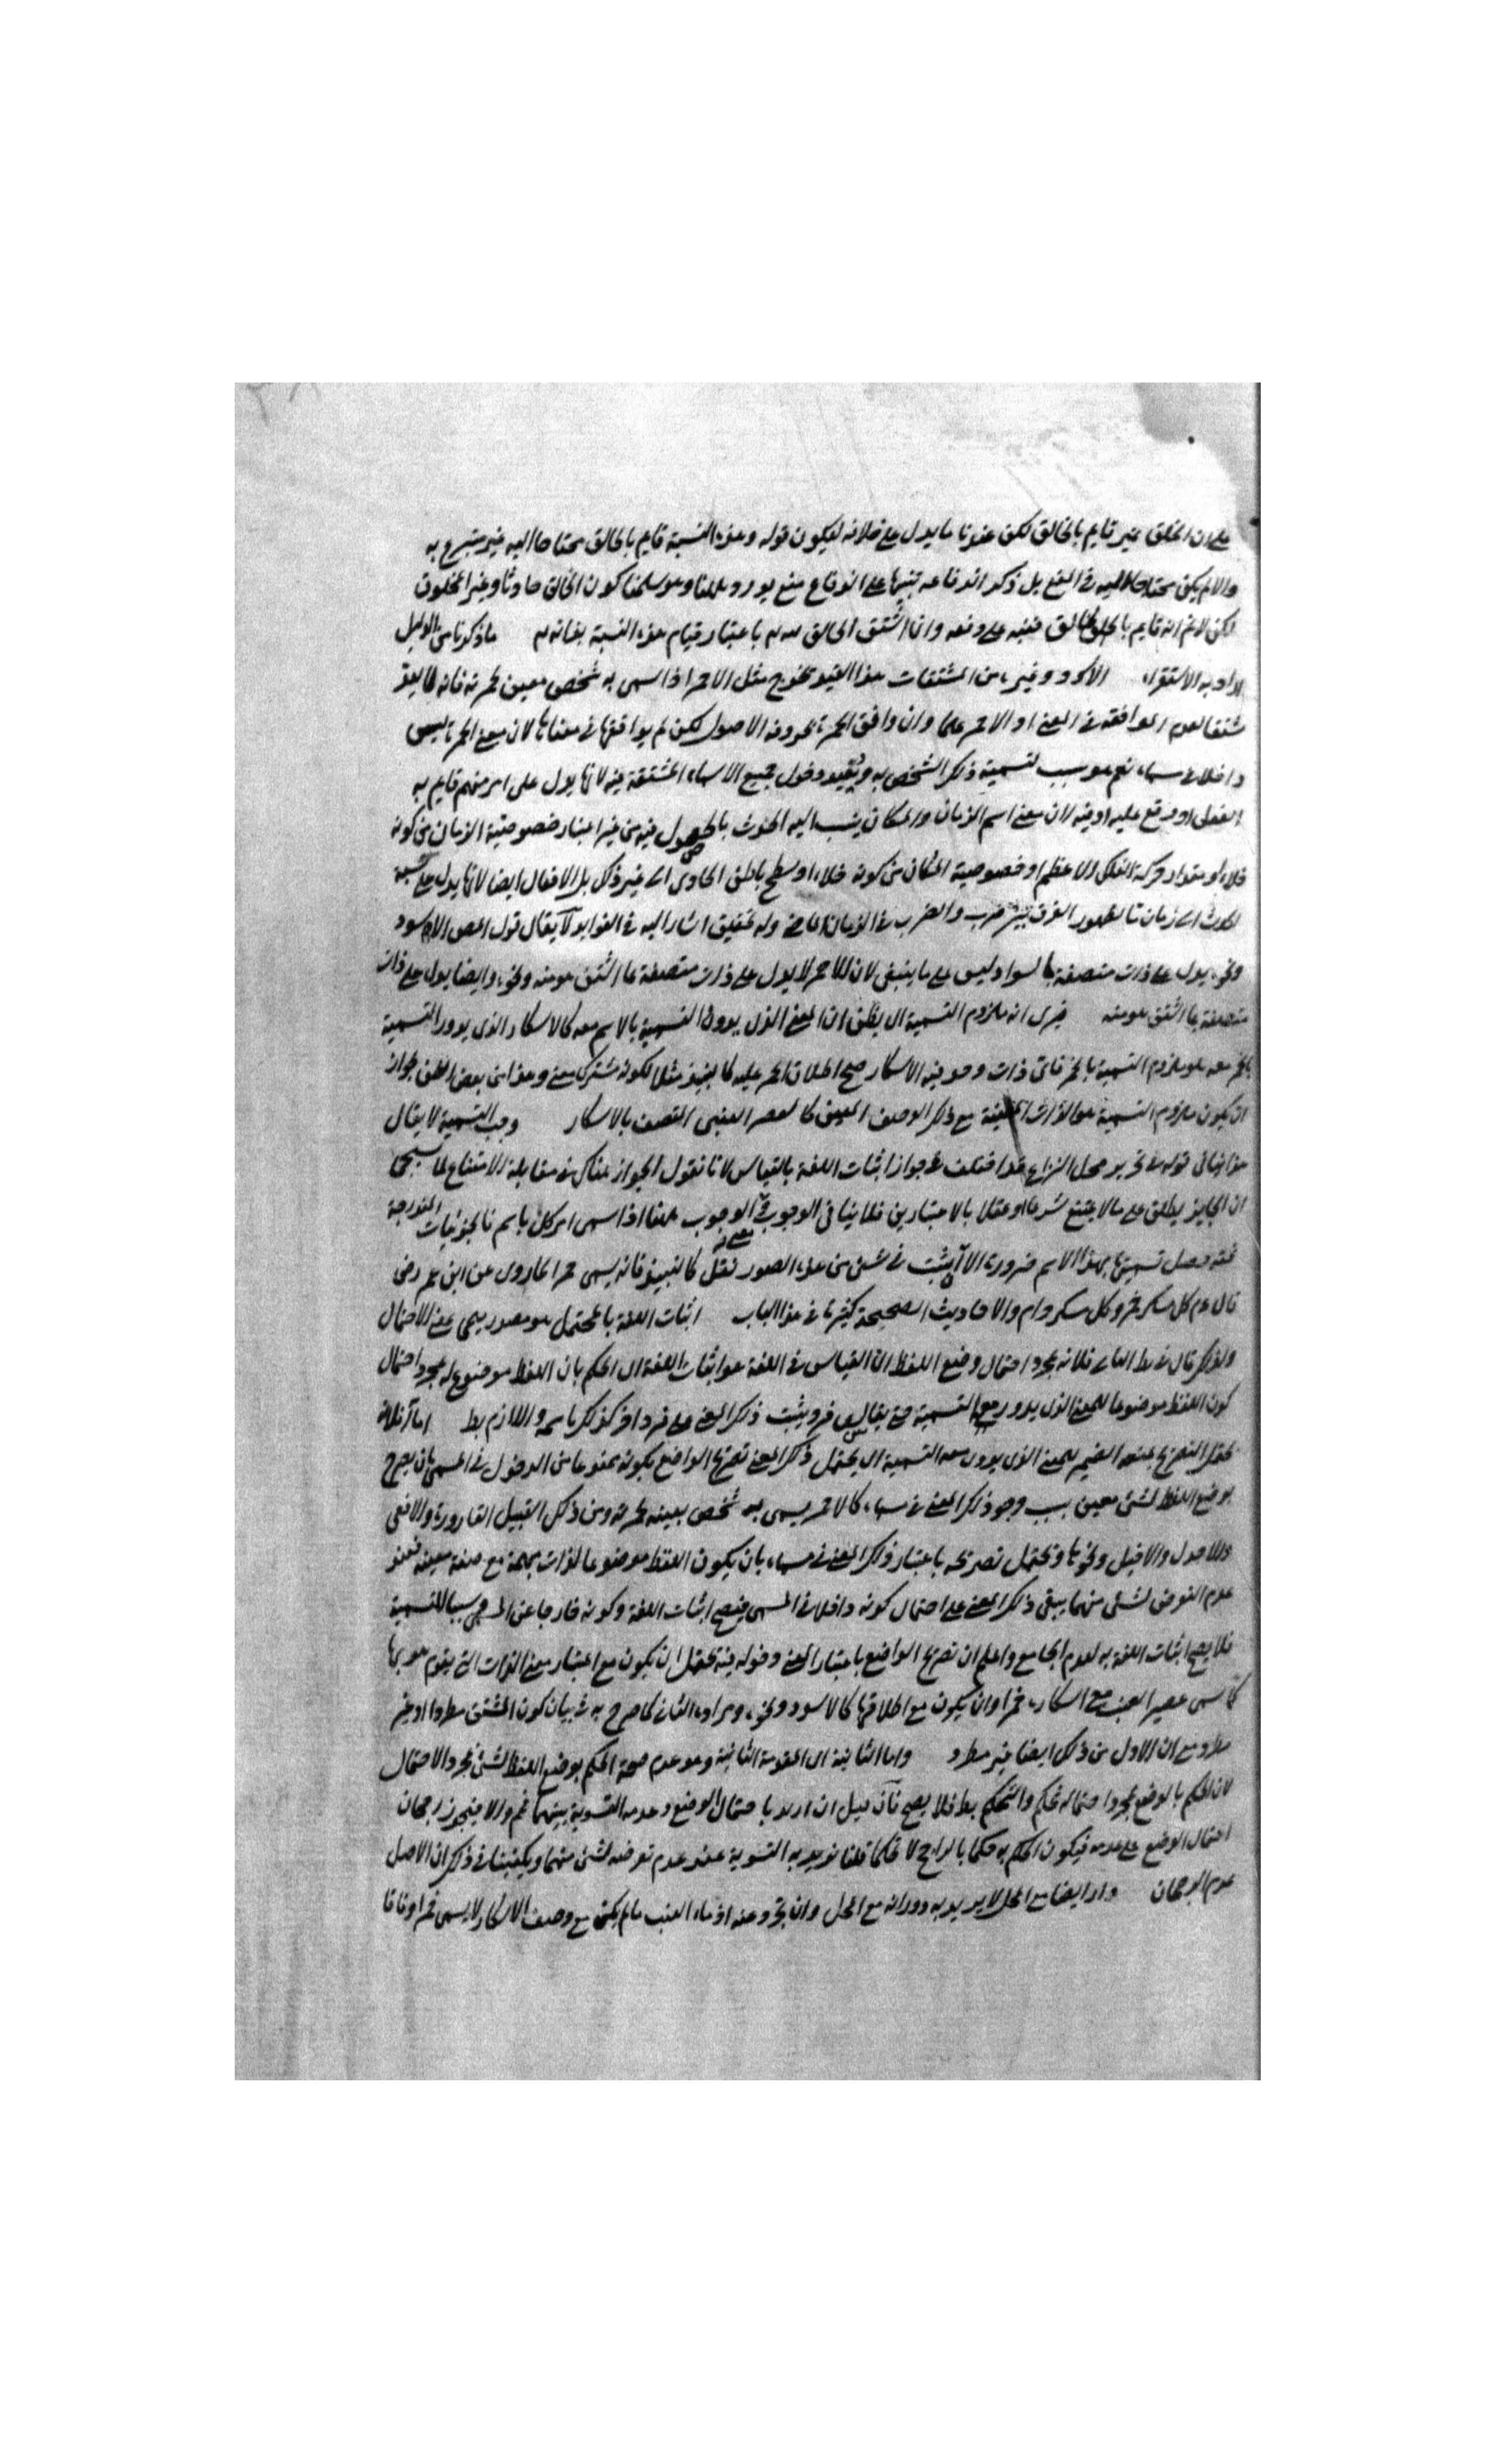 على ان الخلق غير قايم بالخالق لكن عندنا ما يدل على خلافه ليكون قوله وهذه النسبة قايم بالخالق محتاجا اليه غير متبرع به
والا لم يكن محتاجا اليه في المنع بل ذكر اندفاعه تنبيها على اندفاع منع يورد هلنا وهو سلمنا كون الخالق حادثا وغير المخلوق
لكن لا نم انه قايم بالخالق فنبه على دفعه وان اشتق الخالق له باعتبار قيام هذه النسبة بذاته ما ذكرنا من الدليل
اراد به الاستقراء الاسود وغيره من المشتقات هذا القيد يخرج مثل الاحمر اذا سمى به شخص معين لحمرته فانه لا يعد
مشتقا لعدم الموافقة في المعنى اذ الاحمر علما وان وافق الحمرة بحروفه الاصول لكن لم يوافقها في معناها لان معنى الحمرة ليس
داخلا في مسماه نعم هو سبب لتسمية ذلك الشخص به ويفيد دخول جميع الاسماء المشتقة فيه لانها يدل على امر مبهم قايم به
الفعل او وقع عليه او فيه لان معنى اسم الزمان والمكان ينسب اليه الحدث بالحصول فيه من غير اعتبار خصوصية الزمان من كونه
خلاء او مقدار حركة الفلك الاعظم او خصوصية المكان من كونه خلاء او سطح باطن الحاوى الى غير ذلك بل الافعال ايضا لانها يدل على نسبة
الحدث الى زمان ما لظهور الفرق بين ضرب والضرب في الزمان الماضي وله تحقيق اشار اليه في الفوايد لا يقال قول المص الاسود
ونحوه يدل على ذات متصفة بالسواد ليس على ما ينبغي لان الاحمر لا يدل على ذات متصفة بما اشتق هو منه ونحوه وايضا يدل على ذات
متصفة بما اشتق هو منه فيرى انه ملزوم التسمية اي يظن ان المعنى الذي يدور التسمية بالاسم معه كالاسكار الذي يدور التسمية
بالخمر معه هو ملزوم التسمية بالخمر فاي ذات وجد فيه الاسكار صح اطلاق الخمر عليه كالنبيذ مثلا لكونه مشترك معنى وهذا من بعض الظن لجواز
ان يكون ملزوم التسمية هو الذات المعينة مع ذلك الوصف المعين كالعصر العنبي المتصف بالاسكار وجب التسمية لا يقال
هذا ينافي قوله في تحرير محل النزاع قد اختلف في جواز اثبات اللغة بالقياس لانا نقول الجواز هناك في مقابلة الامتناع لما سيجئ
ان الجايز يطلق على ما لا يمتنع شرعا او عقلا بالاعتبارين فلا ينافي الوجوب هلنا اذا سمى امر كلي باسم فالجزئيات المندرجة
تحته حصل تسميتها بهذا الاسم ضرورة الا ان يثبت في شئ من هذه الصور نقل كالنبيذ فانه يسمى خمرا لما روى عن ابن عمر رضى
قال عم كل مسكر خمر وكل مسكر حرام والاحاديث الصحيحة كثيرة في هذا الباب اثبات اللغة بالمحتمل هو مصدر ميمى بمعنى الاحتمال
ولذلك قال في بط الثاني فلانه بمجرد احتمال وضع اللفظ اذ القياس في اللغة هو اثبات اللغة اي الحكم بان اللفظ موضوع له بمجرد احتمال
كون اللفظ موضوعا للمعنى الذي يدور معه التسمية حتى يثبت ذلك المعنى على فرد اخر كذلك باسمه واللازم بط اما انه فلانه
يحتمل التصريح بمنعه الضمير للمعنى الذي يدور معه التسمية اي يحتمل ذلك المعنى تصريح الواضع بكونه ممنوعا من الدخول في المسمى بان يصرح
بوضع اللفظ لشئ معين بسبب وجود ذلك المعنى في مسماه كالاحمر يسمى به شخص بعينه لحمرته ومن ذلك القبيل القارورة والافعى
والاجدل والاخيل ونحوها ويحتمل تصريحه باعتبار ذلك المعنى في مسماه بان يكون اللفظ موضوعا لذات مبهمة مع صفة معينة فعند
عدم التعرض لشئ منهما يبقى ذلك المعنى على احتمال كونه داخلا في المسمى فيصح اثبات اللغة وكونه خارجا عن المسمى سببا للتسمية
فلا يصح اثبات اللغة به لعدم الجامع واعلم ان تصريح الواضع باعتبار المعنى ودخوله فيه يحتمل ان يكون مع اعتبار معنى الذات التي يقوم هو بها
كما سمى عصير العنب مع اسكاره خمرا وان يكون مع اطلاقها كالاسود ونحوه ومراده الثاني كما صرح به في بيان كون المشتق مطردا او غير
مطرد مع ان الاول من ذلك ايضا غير مطرد واما الثانية اي المقدمة الثانية وهو عدم صحة الحكم بوضع اللفظ لشئ بمجرد الاحتمال
لان الحكم بالوضع بمجرد احتماله تحكم والتحكم بط فلا يصح فان قيل ان اريد باحتمال الوضع وعدمه التسوية بينهما نم والا فيجوز رجحان
احتمال الوضع على عدمه فيكون الحكم به حكما بالراجح لا تحكما قلنا نريد به التسوية عند عدم تعرضه لشئ منهما ويكفينا في ذلك ان الاصل
عدم الرجحان ودار ايضا مع المحل لا يريد به دورانه مع المحل وان تجرد عنه اذ ماء العنب ما لم يكن مع وصف الاسكار لا يسمى خمرا وفاقا